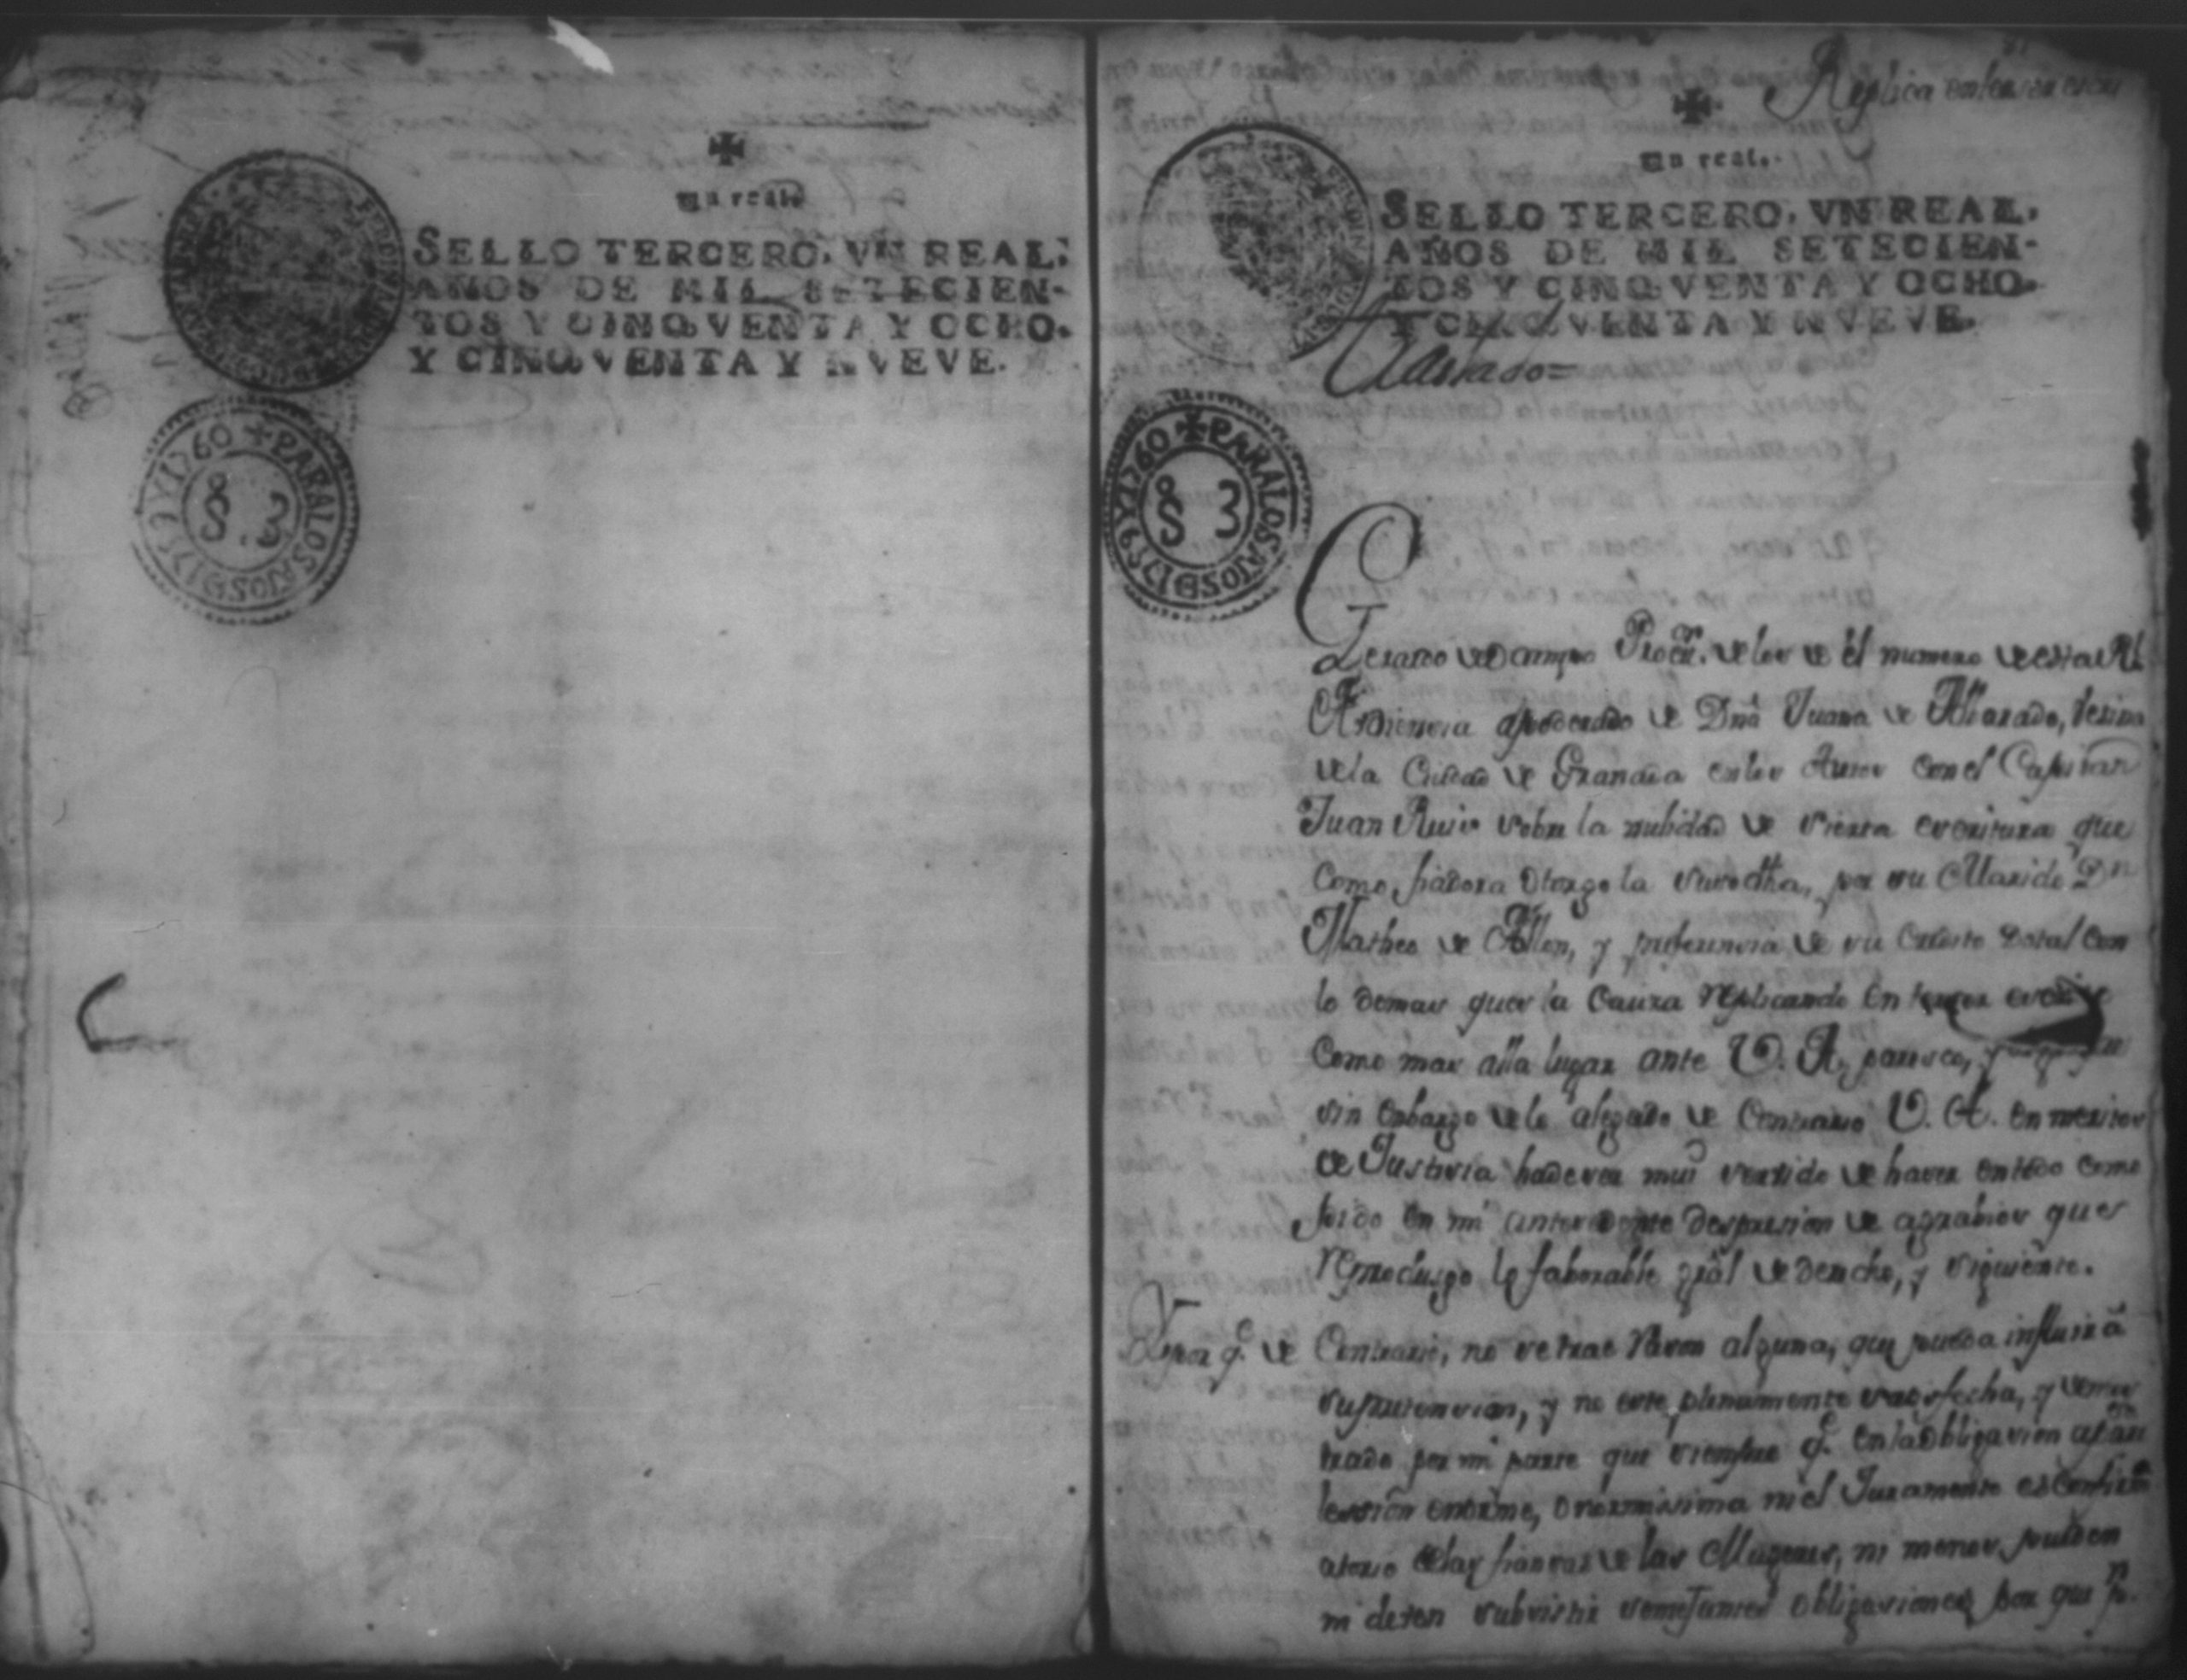 Un real.
SELLO TERCERO, VN REAL,
AÑOS DE MIL SETECIEN-
TOS Y CINQVENTA Y OCHO.
Y CINQVENTA Y NVEVE.
✠ PARA LOS AÑOS D 1759 Y 1760
S. 3
Replica
Un real.
SELLO TERCERO, VN REAL,
AÑOS DE MIL SETECIEN-
TOS Y CINQVENTA Y OCHO.
Y CINQVENTA Y NVEVE.
Traslado =
✠ PARA LOS AÑOS D 1759 Y 1760
S 3
Gerardo de ocampo Procr. de los de el numero de esta Rl.
Audiencia apoderado de Dña Juana de Albarado, vesina
de la Ciudad de Granada en los Autos con el Capitan
Juan Ruis sobre la nulidad de sierta escritura que
Como fiadora Otorgo la susodha, por su Marido Dn
Matheo de Allen, y preferencia de su Credito Dotal Con
lo demas ques la Causa replicando en terser escrito
Como mas alla lugar ante V. A. paresco, y
sin Enbargo de lo alegado de Contrario V. A. en meritos
de Justisia ha de ser mui servido de haver en todo como
pido en mi antecedente despresion de agrabios que
reprodusgo lo faborable gral de derecho, y siguiente.
Y por q. de Contrario, no se trae rason alguna, que pueda influir â
sus pretencion, y no este plenamente satisfecha, y demos
trado por mi parte que siempre q. en la Obligasion
lession enorme, o normissima ni el Juramento es Confirm
atorio de las fiansas de las Mugeres, ni menos pueden
ni deven subsistir semejantes obligasiones por que p.